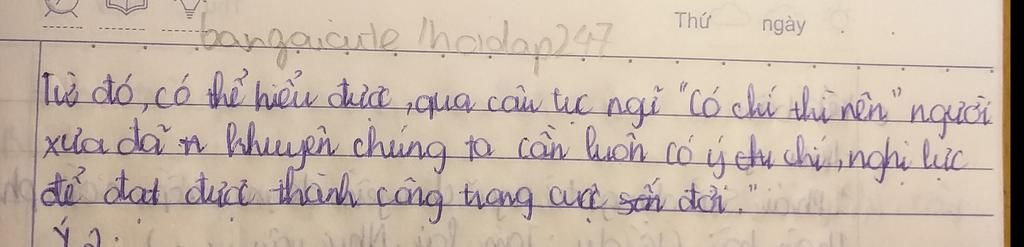 Thứ ngày
bangaicute/hoidap247
Từ đó, có thể hiểu được, qua câu tục ngĩ "Có chí thì nên" người
xưa đã khuyên chúng ta cần luôn có ý chí, nghị lực
để đạt được thành công trong cuộc sốn đời."
Ý 2: